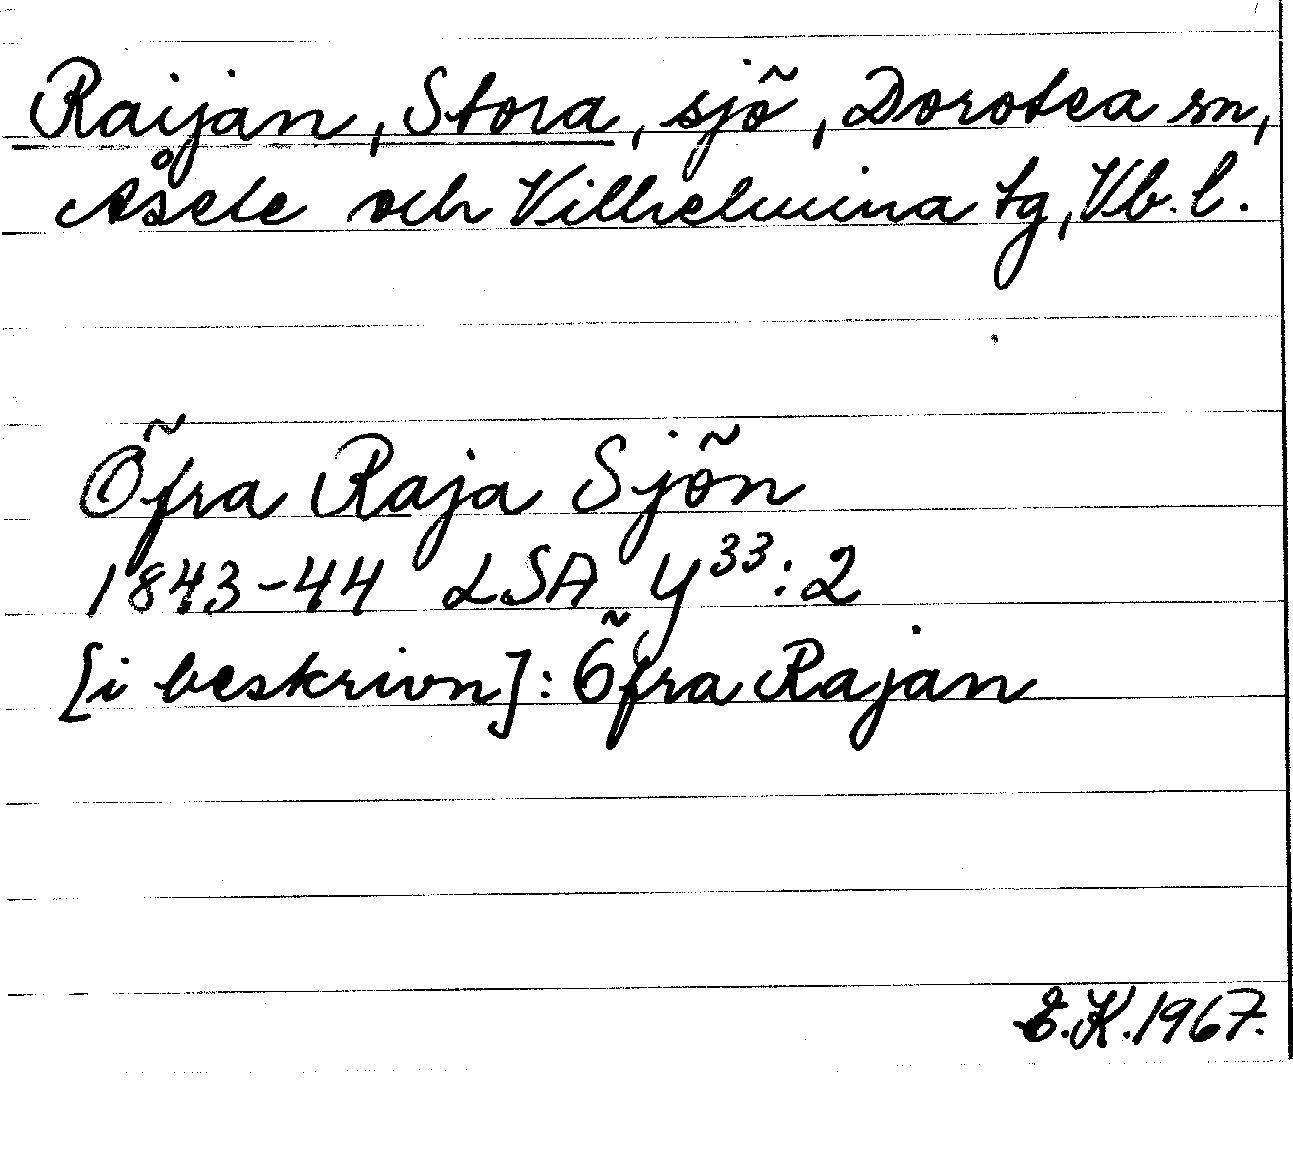 Raijan, Stora, sjö, Dorotea sn,
Åsele och Vilhelmina tg, Vb. l.
Öfra Raja Sjön
1843-44 LSA Y33:2
[i beskrivn]: Öfra Rajan
E.K. 1967.